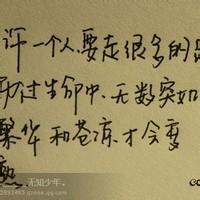 许一个人,要走很多的路
历过生命中无数突如
繁华和苍凉才会变
熟
无知少年。